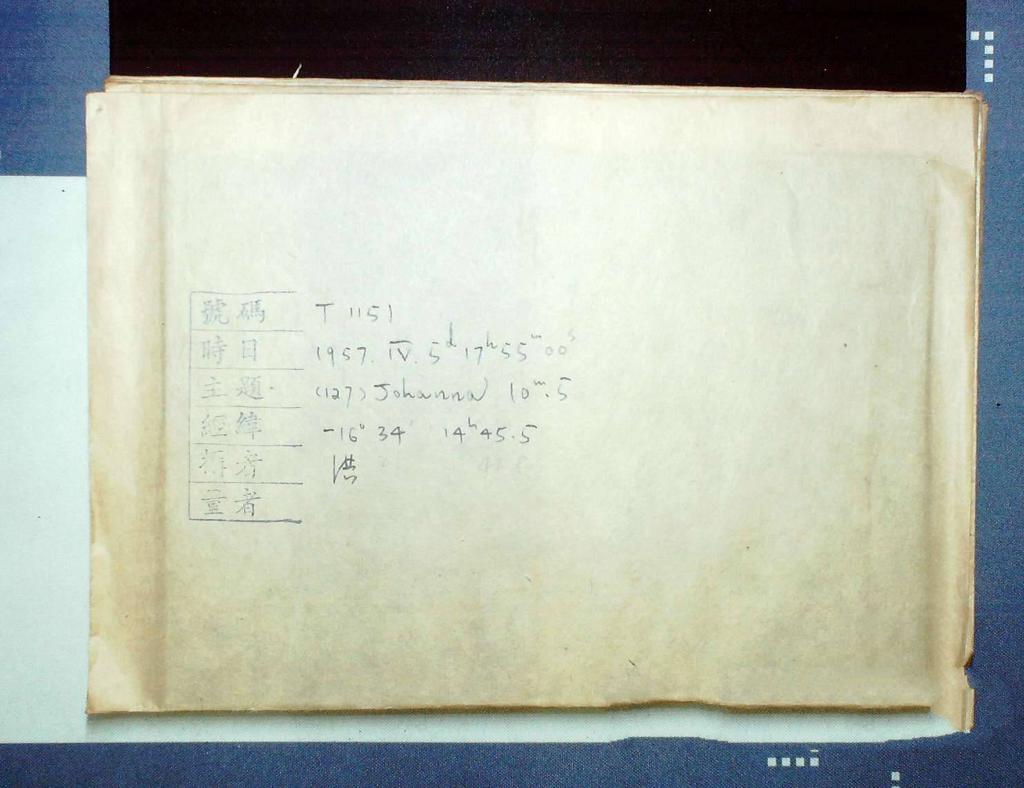 號碼 T 1151
時日 1957. IV. 5ᵈ 17ʰ 55ᵐ 00ˢ
主題 (127) Johanna 10ᵐ.5
經緯 -16° 34' 14ʰ 45.5
拆者 洪
量者